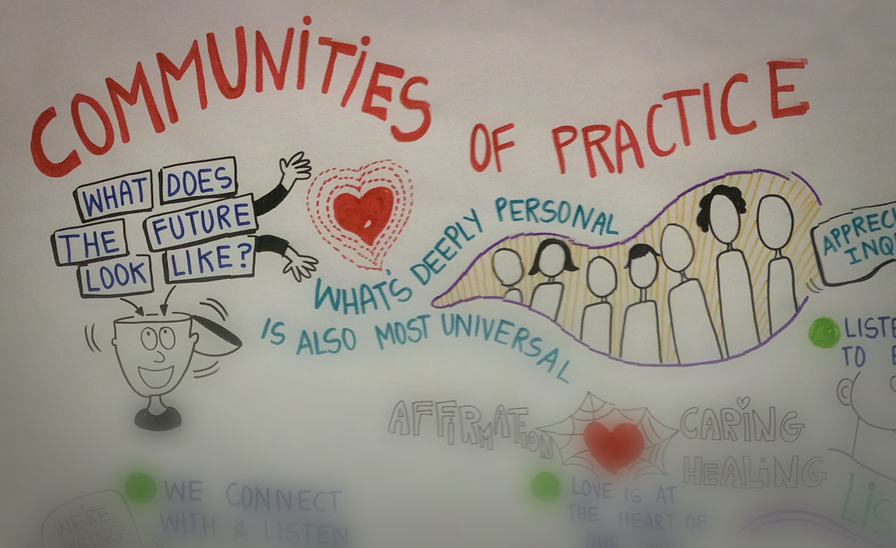 COMMUNITIES
OF PRACTICE
WHAT DOES
THE FUTURE
LOOK LIKE?
WHAT'S DEEPLY PERSONAL
IS ALSO MOST UNIVERSAL
LISTE
TO
AFFIRMATION
CARING
HEALING
WE CONNECT
WITH & LISTEN
LOVE IS AT
THE HEART OF
WE'RE